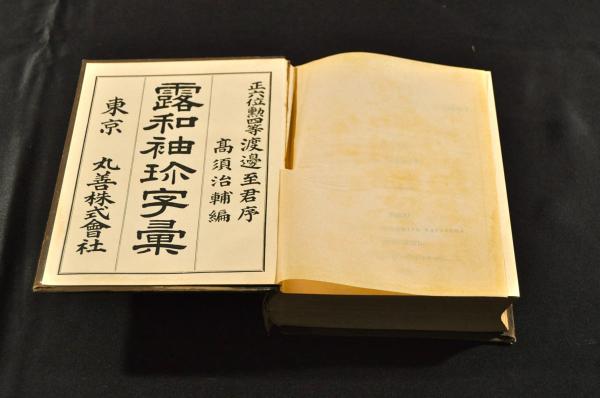 正六位勲四等渡邊至君序
高須治輔編
露和袖珍字彙
東京 丸善株式會社